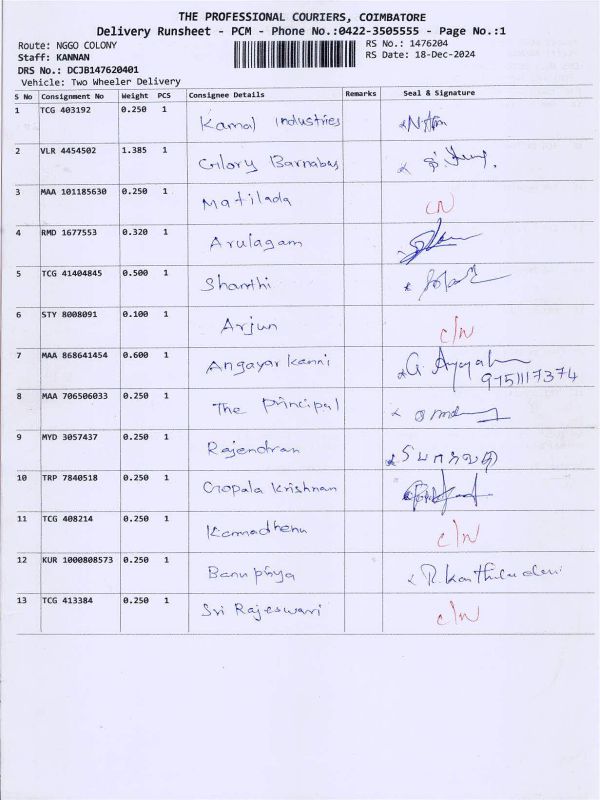 THE PROFESSIONAL COURIERS, COIMBATORE
Delivery Runsheet - PCM - Phone No.:0422-3505555 - Page No.:1
Route: NGGO COLONY RS No.: 1476204
Staff: KANNAN RS Date: 18-Dec-2024
DRS No.: DCJB147620401
Vehicle: Two Wheeler Delivery
S No Consignment No Weight PCS Consignee Details Remarks Seal & Signature
1 TCG 403192 0.250 1 Kamal Industries
2 VLR 4454502 1.385 1 Glory Barnabas
3 MAA 101185630 0.250 1 Matilada CN
4 RMD 1677553 0.320 1 Arulagam
5 TCG 41404845 0.500 1 Shanthi
6 STY 8008091 0.100 1 Arjun C/N
7 MAA 868641454 0.600 1 Angayarkanni
9751117374
8 MAA 706506033 0.250 1 The Principal
9 MYD 3057437 0.250 1 Rajendran
10 TRP 7840518 0.250 1 Gopala Krishnan
11 TCG 408214 0.250 1 Kamadhenu C/N
12 KUR 1000808573 0.250 1 Banupriya
13 TCG 413384 0.250 1 Sri Rajeswari C/N